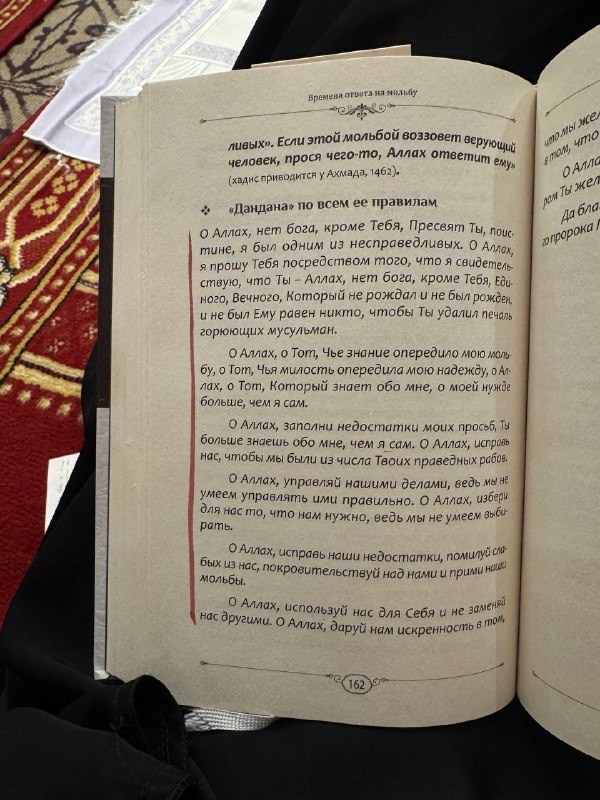 Времена ответа на мольбу
ливых». Если этой мольбой воззовет верующий
человек, прося чего-то, Аллах ответит ему»
(хадис приводится у Ахмада, 1462).
❖ «Дандана» по всем ее правилам
О Аллах, нет бога, кроме Тебя, Пресвят Ты, поис-
тине, я был одним из несправедливых. О Аллах,
я прошу Тебя посредством того, что я свидетель-
ствую, что Ты – Аллах, нет бога, кроме Тебя, Еди-
ного, Вечного, Который не рождал и не был рожден,
и не был Ему равен никто, чтобы Ты удалил печаль
горюющих мусульман.
О Аллах, о Тот, Чье знание опередило мою моль-
бу, о Тот, Чья милость опередила мою надежду, о Ал-
лах, о Тот, Который знает обо мне, о моей нужде
больше, чем я сам.
О Аллах, заполни недостатки моих просьб, Ты
больше знаешь обо мне, чем я сам. О Аллах, исправь
нас, чтобы мы были из числа Твоих праведных рабов.
О Аллах, управляй нашими делами, ведь мы не
умеем управлять ими правильно. О Аллах, избери
для нас то, что нам нужно, ведь мы не умеем выби-
рать.
О Аллах, исправь наши недостатки, помилуй сла-
бых из нас, покровительствуй над нами и прими наши
мольбы.
О Аллах, используй нас для Себя и не заменяй
нас другими. О Аллах, даруй нам искренность в том,
162
что мы жел
в том, что
О Алла
ром Ты жел
Да бла
го пророка